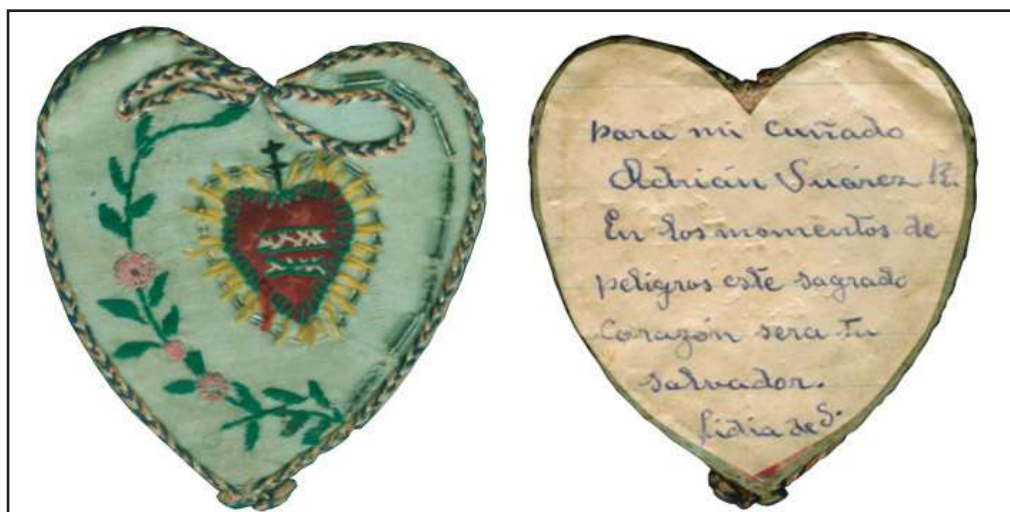 para mi cuñado
Adrián Suárez R.
En los momentos de
peligros este sagrado
Corazón sera tu
salvador.
Lidia de S.